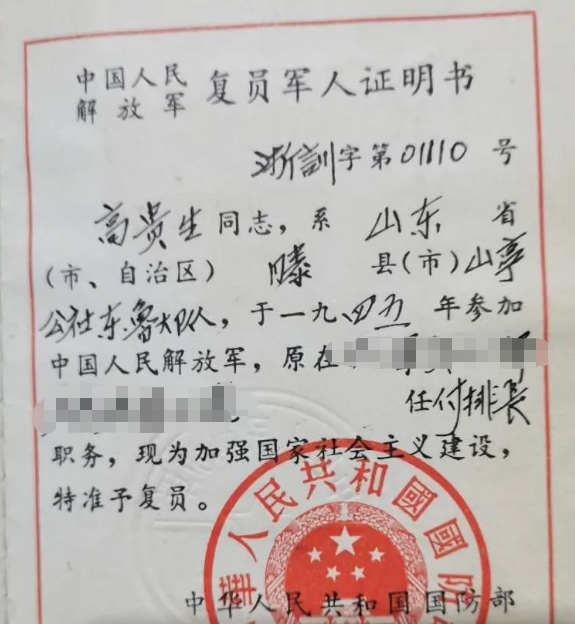 中国人民
解放军 复员军人证明书
浙訓字第01110号
高贵生同志，系 山东 省
（市、自治区） 滕 县（市）山亭
公社东鲁大队人，于一九四五年参加
中国人民解放军，原在
任付排长
职务，现为加强国家社会主义建设，
特准予复员。
華人民共和國國防
中华人民共和国国防部